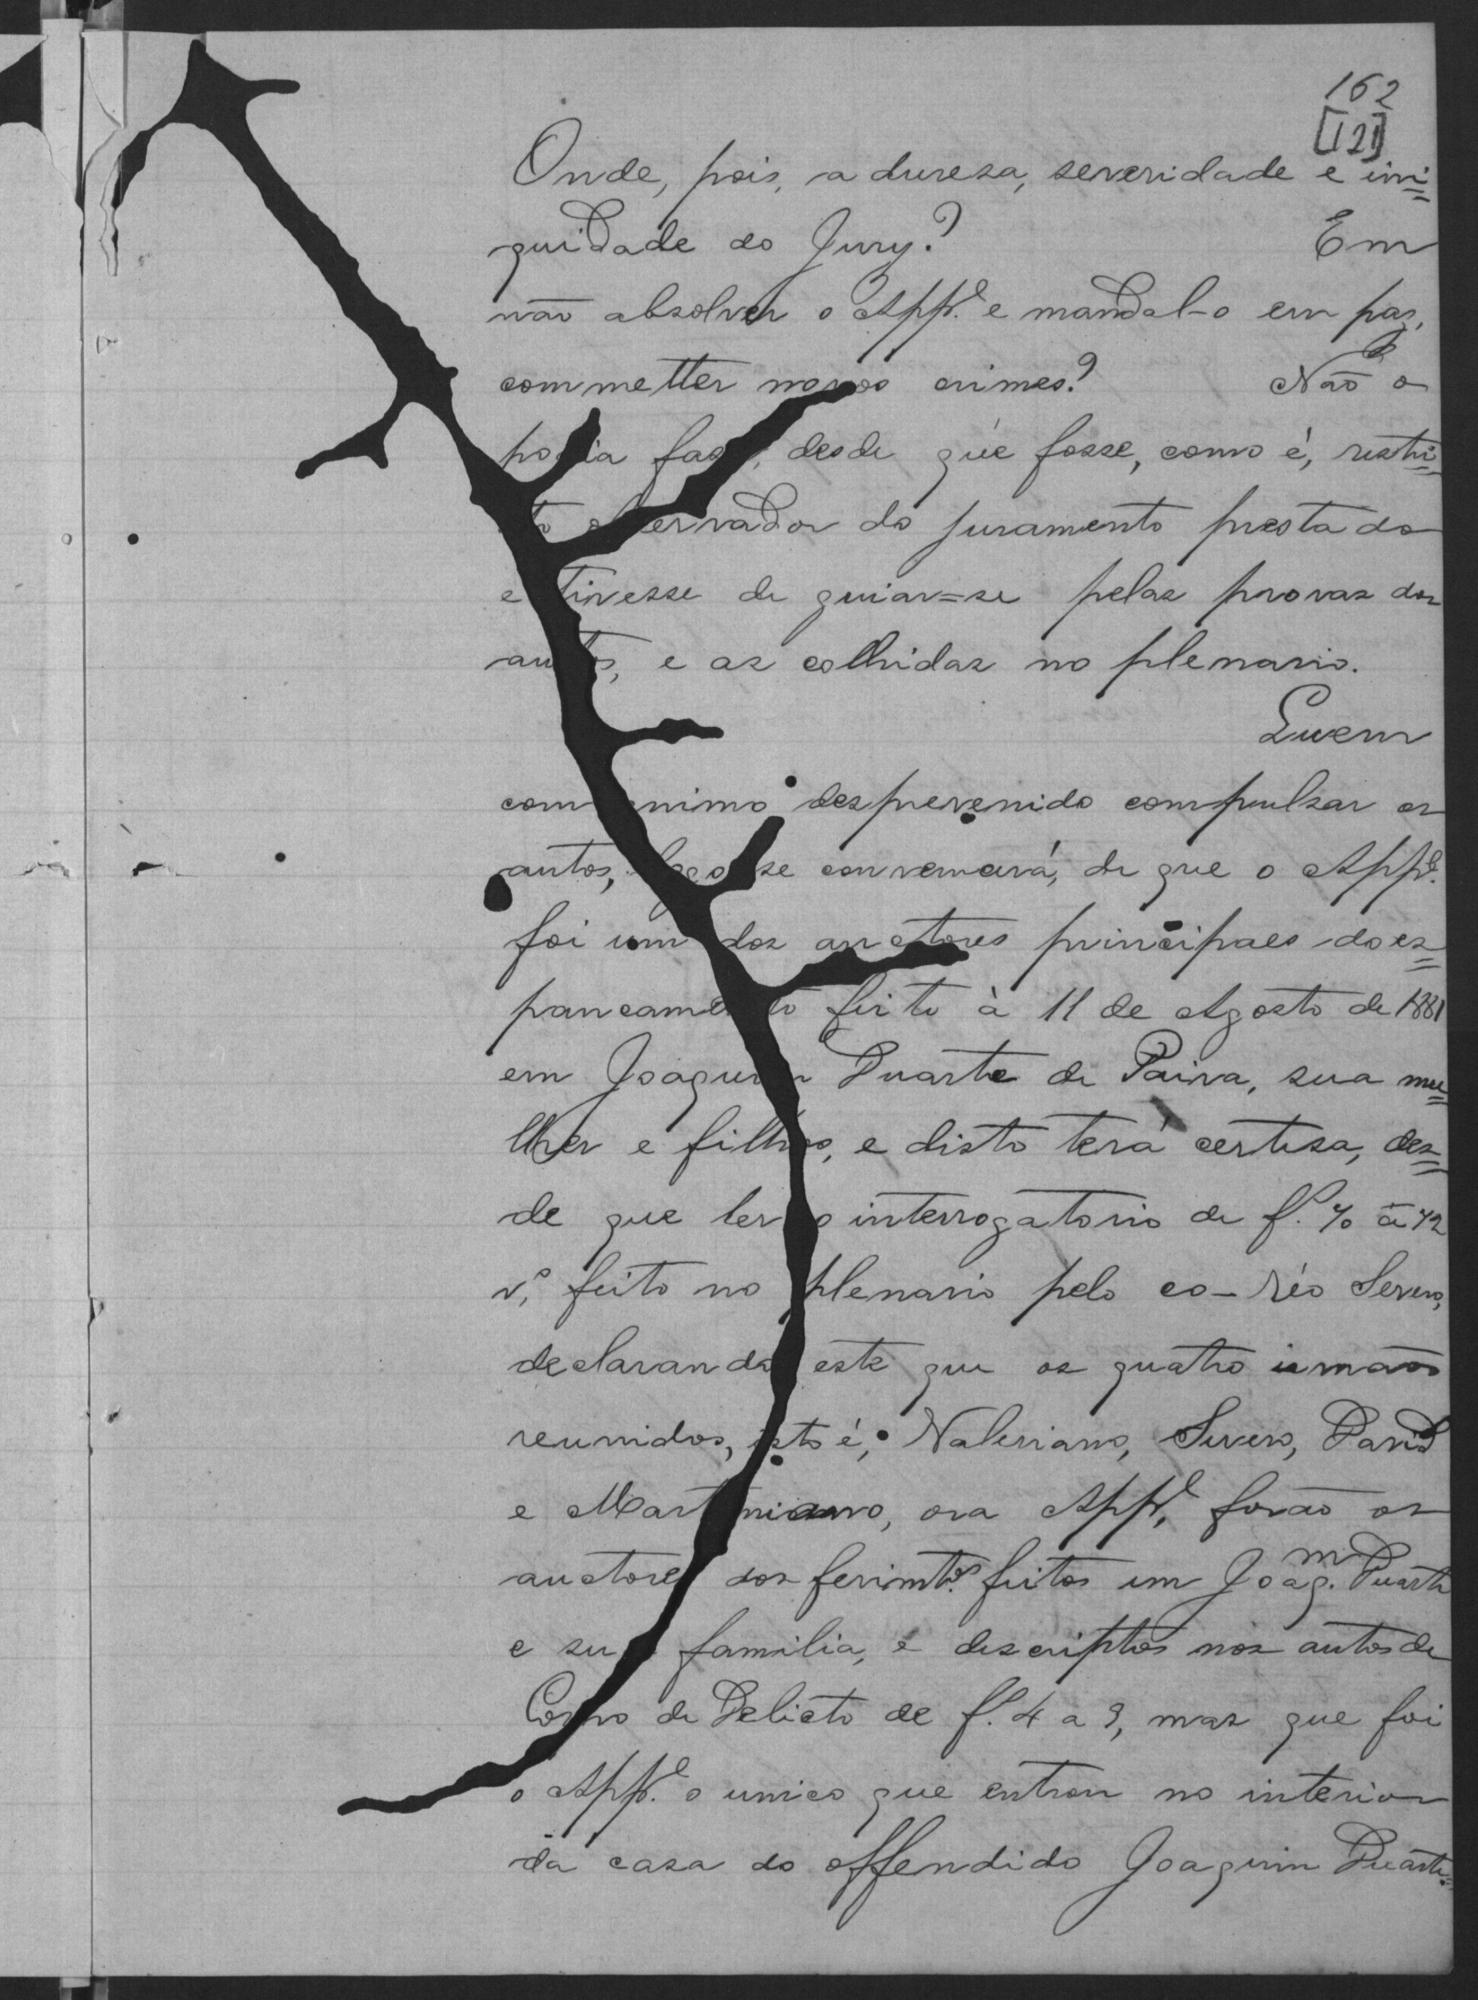 162
[121]
Onde, pois, a duresa, severidade e ini=
quidade do Jury? Em
não absolver o App.e e mandal-o em paz,
commetter novos crimes? Não o
podia faser, desde que fosse, como é, restri=
cto observador do juramento prestado
e tivesse de guiar=se pelas provas dos
autos, e as colhidas no plenario.
Quem
com animo desprevenido compulsar os
autos, logo se convencerá, de que o App.e
foi um dos auctores principaes do es=
pancamento feito à 11 de Agosto de 1881
em Joaquim Duarte de Paiva, sua mu=
lher e filhos, e disto terá certesa, des=
de que ler o interrogatorio de f.s 40 à 42
v.o, feito no plenario pelo co-réo Severo,
declarando este que os quatro irmãos
reunidos, isto é, Valeriano, Severo, David
e Martiniano, ora App.e, forão os
auctores dos ferimtos. feitos em Joaq.m Duarte
e sua familia, e descriptos nos autos de
Corpo de Delicto de f.s 4 a 9, mas que foi
o App.e o unico que entrou no interior
da casa do offendido Joaquim Duarte=